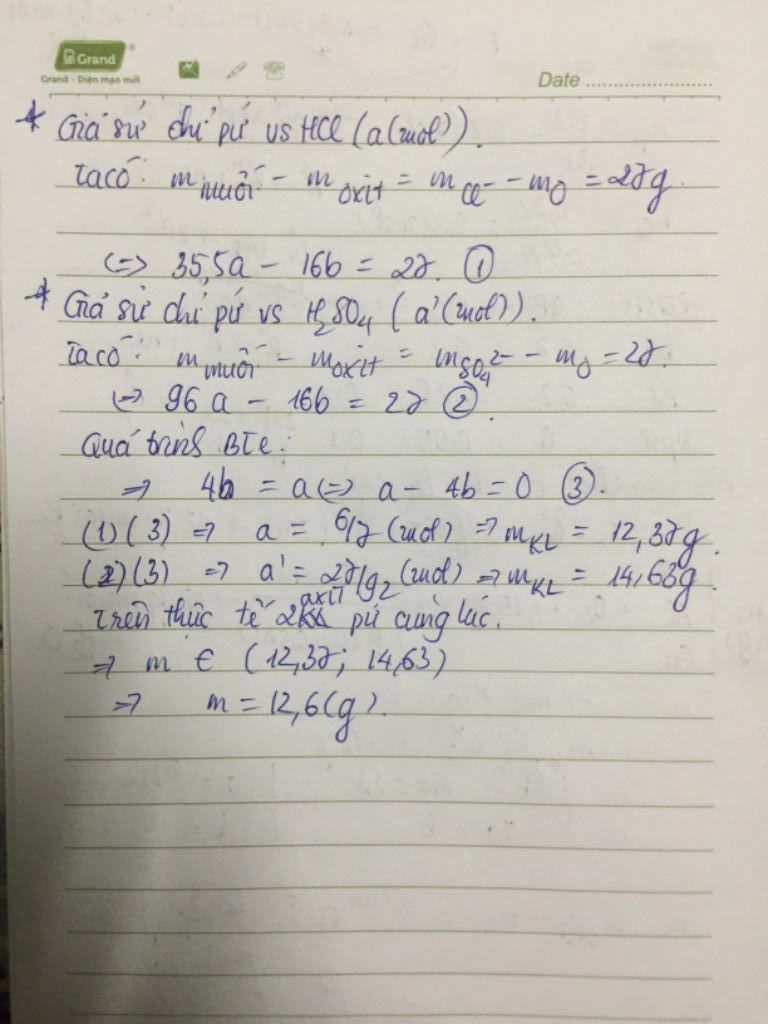 Grand
Grand - Diện mạo mới
Date
* Giả sử chỉ pứ vs HCl (a(mol)).
Ta có: m muối - m oxit = m Cl⁻ - m O = 27g.
(=> 35,5a - 16b = 27. ①
* Giả sử chỉ pứ vs H₂SO₄ (a'(mol)).
Ta có: m muối - m oxit = m SO₄²⁻ - m O = 27.
(=> 96a - 16b = 27 ②.
Quá trình BTe:
=> 4b = a (=> a - 4b = 0 ③.
(1)(3) => a = 6/7 (mol) => m KL = 12,37g.
(2)(3) => a' = 27/92 (mol) => m KL = 14,63g.
Trên thực tế 2 axit pứ cùng lúc.
=> m ∈ (12,37; 14,63)
=> m = 12,6(g).